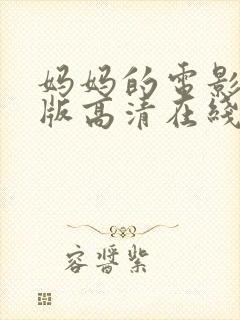 妈妈的电影
版高清在线
容晋紫